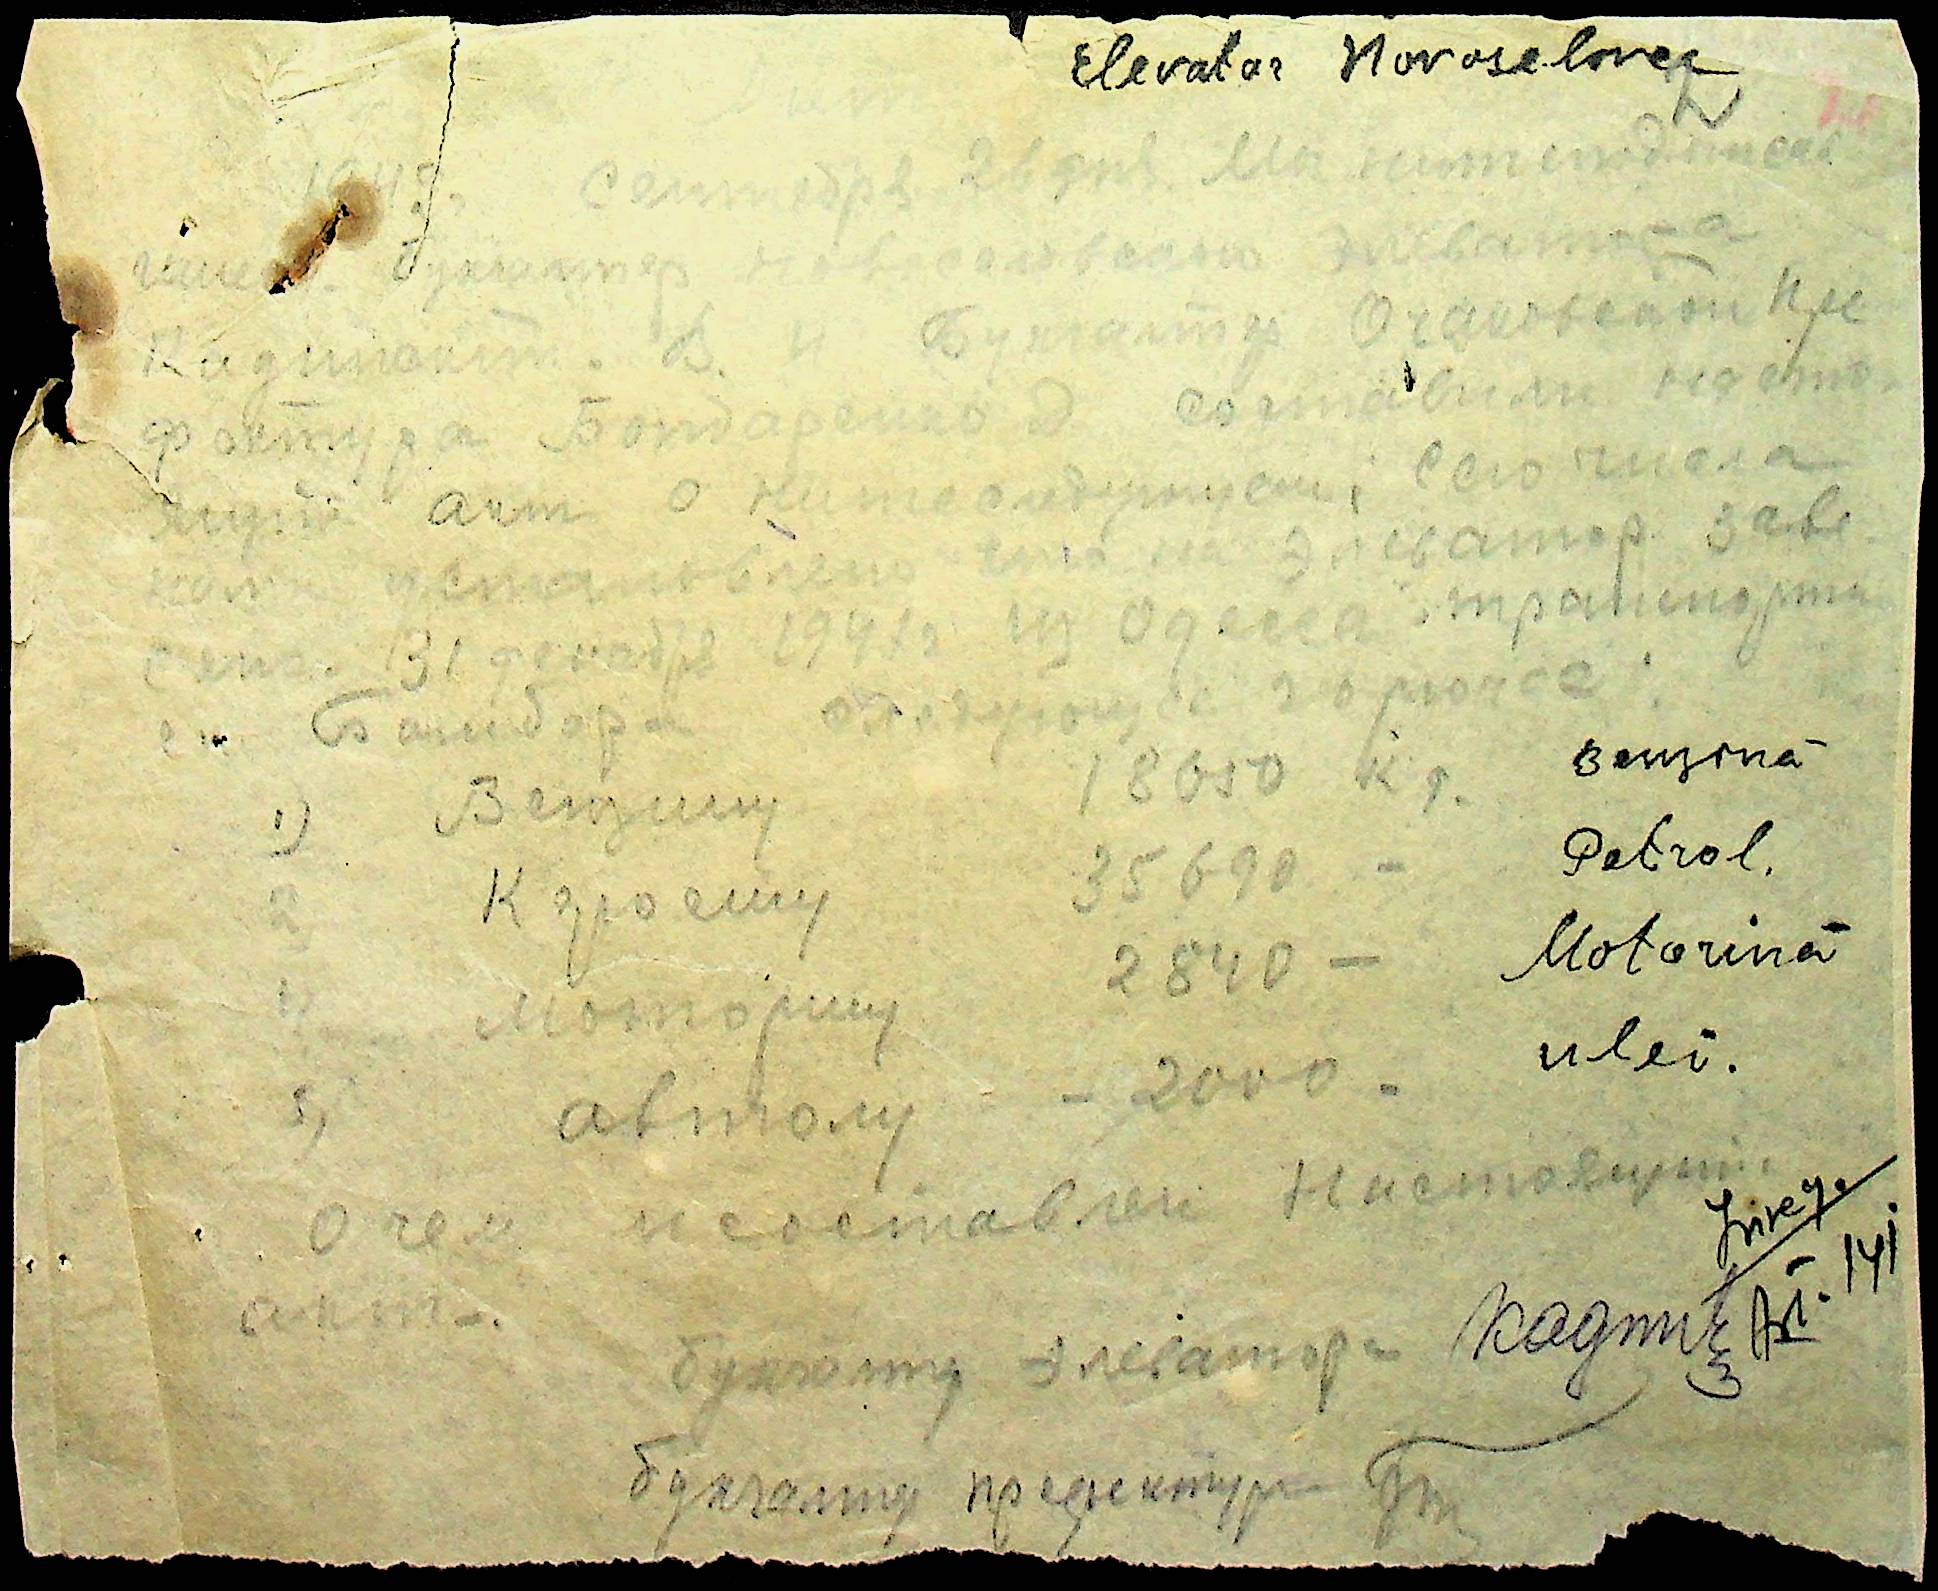 Elevator Novoselovca
Акт
194 г. Сентября 26 дня. Мы нижеподписав
шиеся бухгалтер Новоселовского Элеватора
В. и Бухгалтер Очаковской Пре
фектура Бондаренко Д составили настоя
щий акт о нижеследующем; Сего числа
нами установлено что на Элеватор заве
зено 31 декабря 1941 г из Одесса транспорта
следующее горючее:
1) Бензину 18650 кг. Benzină
2 Керосину 35690 - Petrol.
Моторину 2840 — Motorină
автолу - 2000 - ulei.
О чем и составлен Настоящий
акт -.
бухгалтер Элеватора
бухгалтер префектура